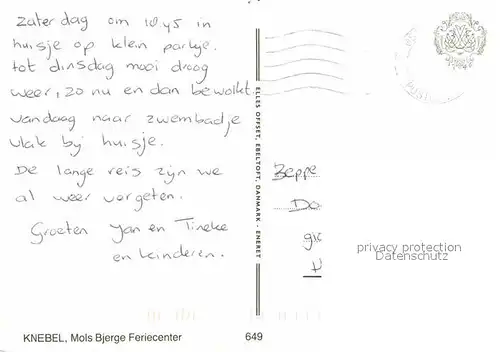 zaterdag om 10.45 in
huisje op klein parkje.
tot dinsdag mooi droog
weer, zo nu en dan bewolkt.
vandaag naar zwembadje
vlak bij huisje.
De lange reis zijn we
al weer vergeten.
Groeten Jan en Tineke
en kinderen.
ELLES OFFSET, EBELTOFT, DANMARK - ENERET
Beppe
Do
privacy protection
Datenschutz
KNEBEL, Mols Bjerge Feriecenter
649